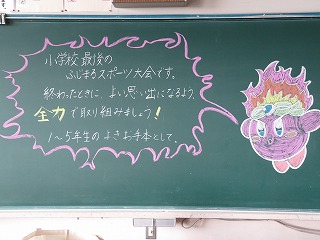 小学校最後の
ふじまるスポーツ大会です。
終わったときに、よい思い出になるよう、
全力で取り組みましょう！
1〜5年生のよきお手本として。